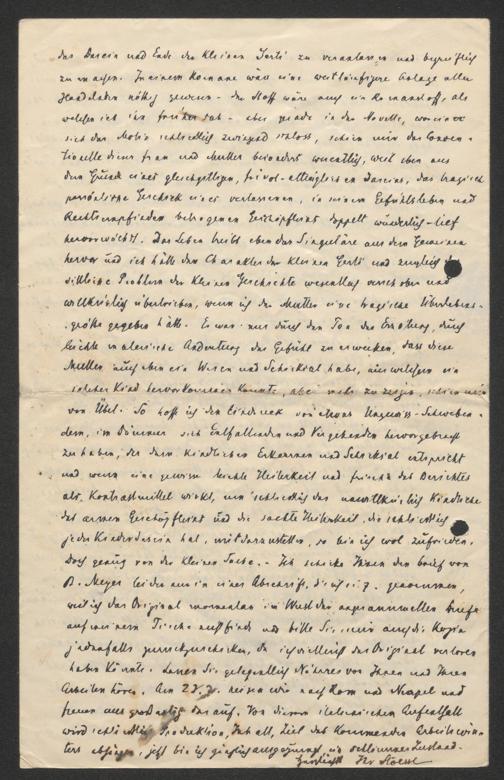 das Dasein und Ende der kleinen Gerti zu veranlassen und begreiflich
zu machen. In einem Romane wäre eine weitläufigere Anlage aller
nöthig gewesen – der Stoff wäre auch ein Romanstoff, als
welchen ich ihn früher sah – aber gerade in der Novelle, wo
sich das Motiv schließlich zwingend schloss, schien mir das Conven-
tionelle dieser Frau und Mutter besonders wesentlich, weil eben aus
dem Grund eines gleichgiltigen, frivol-alltäglichen Daseins, das tragisch
persönliche Geschick eines verlassenen, in seinem Gefühlsleben und
Rechtsempfinden betrogenen Geschöpfleins doppelt wunderlich-tief
hervorwächst. Das Leben treibt eben das Singuläre aus dem Gemeinen
hervor und ich hätte den Charakter der kleinen Gerti und zugleich das
sittliche Problem der kleinen Geschichte wesentlich verschoben und
willkürlich übertrieben, wenn ich der Mutter eine tragische Überlebens-
größe gegeben hätte. Es war nur durch den Ton der Erzählung, durch
leichte malerische Andeutung das Gefühl zu erwecken, dass diese
Mutter auch eben ein Wesen und Schicksal habe, aus welchem ein
solches Kind hervorkommen konnte, aber mehr zu zeigen, schien mir
von Übel. So hoff ich den Eindruck von etwas Ungewiss-Schweben-
dem, im Dämmer sich Entfaltenden und Vergehenden hervorgebracht
zu haben, der dem kindlichen Erkennen und Schicksal entspricht
und wenn eine gewisse leichte Heiterkeit und Frische des Berichtes
als Kontrastmittel wirkt, um schließlich das unwillkürlich Kindliche
des armen Geschöpfleins und die sachte Heiterkeit, die schließlich
jedes Kinderdasein hat, mitdarzustellen, so bin ich wol zufrieden.
Doch genug von der kleinen Sache. – Ich schicke Ihnen den Brief von
B. Meyer leider nur in einer Abschrift, die ich s. Z. genommen,
weil ich das Original momentan im Wust der angesammelten Briefe
auf meinem Tische nicht finde und bitte Sie, mir auch die Kopie
jedenfalls zurückzuschicken, da ich vielleicht das Original verloren
haben könnte. Lassen Sie gelegentlich Näheres von Ihnen und Ihren
Arbeiten hören. Am reisen wir nach Rom und Neapel und
freuen uns großartig darauf. Von diesem italienischen Aufenthalt
wird schließlich Produktion, Inhalt, Ziel des kommenden Arbeitswin-
ters abhängen, jetzt bin ich gänzlich ausgepumpt im Zustand.
Herzlichst Ihr Stoessl